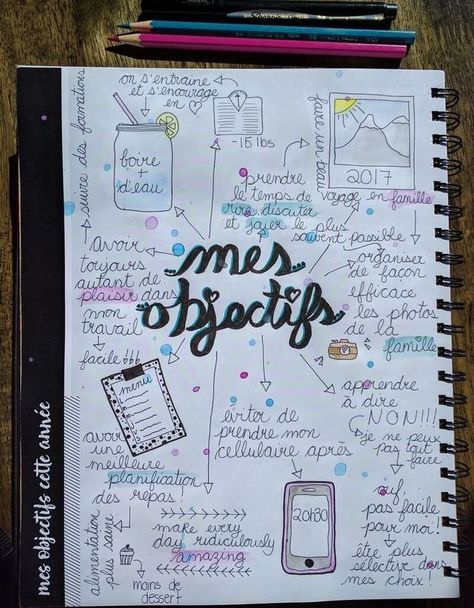 mes objectifs cette année
suivre des formations
on s'entraîne
et s'encourage
en
-15 lbs
boire
+
d'eau
faire un beau
voyage en famille
2017
prendre
le temps de
rire, discuter
et jaser le plus
souvent possible
mes
objectifs
avoir
toujours
autant de
plaisir dans
mon
travail
facile!!!
organiser
de façon
efficace
les photos
de la
famille
menu
avoir
une
meilleure
planification
des repas!
alimentation
plus saine
moins de
dessert
éviter de
prendre mon
cellulaire après
20h30
make every
day ridiculously
amazing
apprendre
à dire
NON!!!
je ne peux
pas tout
faire
ouf,
pas facile
pour moi!
être plus
sélective dans
mes choix!